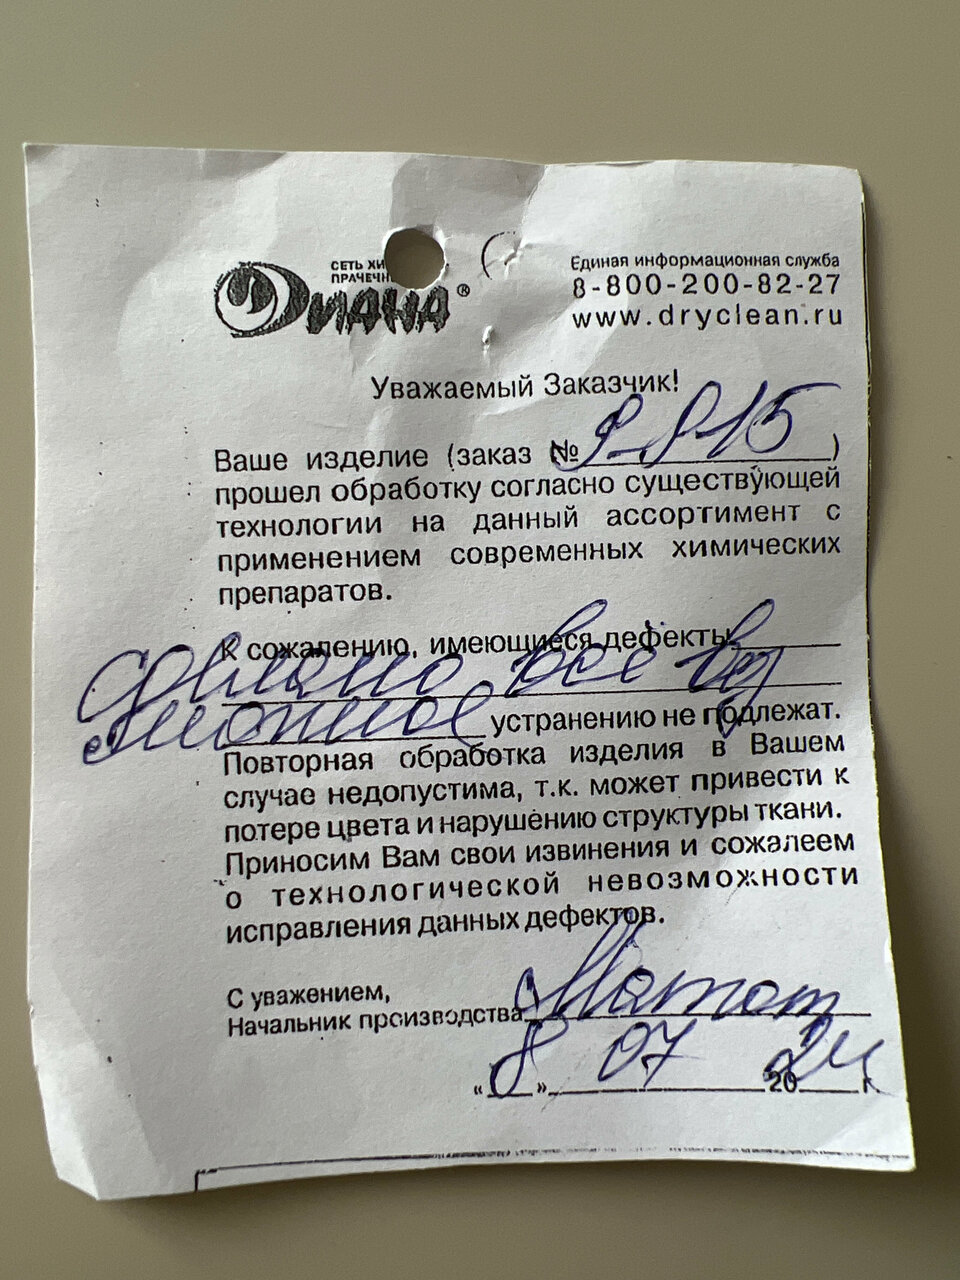 СЕТЬ ХИ
ПРАЧЕЧН
ДИАНА®
Единая информационная служба
8-800-200-82-27
www.dryclean.ru
Уважаемый Заказчик!
Ваше изделие (заказ № 9-815)
прошел обработку согласно существующей
технологии на данный ассортимент с
применением современных химических
препаратов.
К сожалению, имеющиеся дефекты
сделано все воз
можное устранению не подлежат.
Повторная обработка изделия в Вашем
случае недопустима, т.к. может привести к
потере цвета и нарушению структуры ткани.
Приносим Вам свои извинения и сожалеем
о технологической невозможности
исправления данных дефектов.
С уважением,
Начальник производства
«8» 07 2024 г.